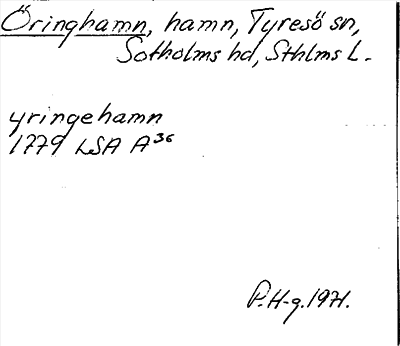 Öringhamn, hamn, Tyresö sn,
Sotholms hd, Sthlms L.
yringehamn
1779 LSA A³⁶
P.H-g.1971.